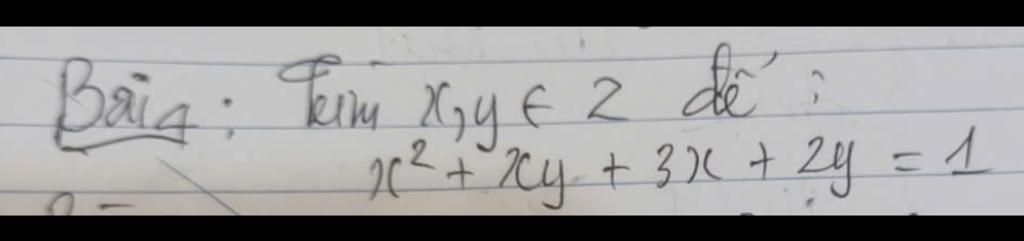 Bài 4 : Tìm x, y ∈ Z để :
x² + xy + 3x + 2y = 1